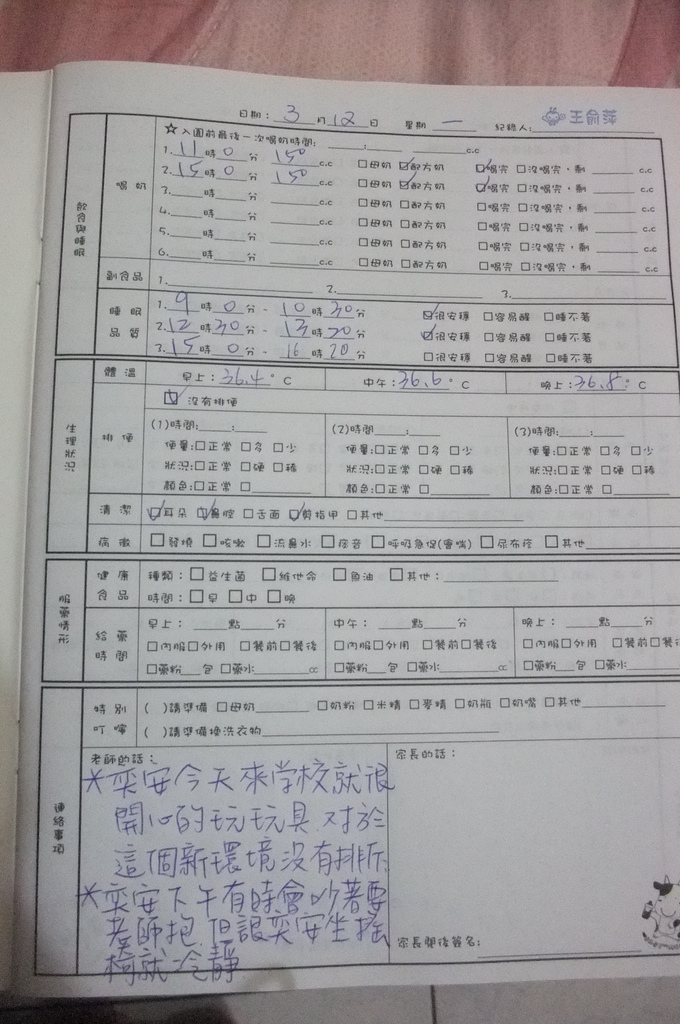 日期：3月12日 星期一 紀錄人：王俞萍
飲食與睡眠
喝奶
☆入園前最後一次喝奶時間：___：___ ___c.c
1. 11時0分 150c.c □母奶 ☑配方奶 ☑喝完 □沒喝完，剩___c.c
2. 15時0分 150c.c □母奶 ☑配方奶 ☑喝完 □沒喝完，剩___c.c
3.___時___分 ___c.c □母奶 □配方奶 □喝完 □沒喝完，剩___c.c
4.___時___分 ___c.c □母奶 □配方奶 □喝完 □沒喝完，剩___c.c
5.___時___分 ___c.c □母奶 □配方奶 □喝完 □沒喝完，剩___c.c
6.___時___分 ___c.c □母奶 □配方奶 □喝完 □沒喝完，剩___c.c
副食品 1.___ 2.___ 3.___
睡眠品質
1. 9時0分 - 10時30分 ☑很安穩 □容易醒 □睡不著
2. 12時30分 - 13時20分 ☑很安穩 □容易醒 □睡不著
3. 15時0分 - 16時20分 □很安穩 □容易醒 □睡不著
生理狀況
體溫 早上：36.4°C 中午：36.6°C 晚上：36.8°C
排便
☑沒有排便
(1)時間：___：___ (2)時間：___：___ (3)時間：___：___
便量：□正常 □多 □少 便量：□正常 □多 □少 便量：□正常 □多 □少
狀況：□正常 □硬 □稀 狀況：□正常 □硬 □稀 狀況：□正常 □硬 □稀
顏色：□正常 □___ 顏色：□正常 □___ 顏色：□正常 □___
清潔 ☑耳朵 ☑鼻腔 □舌面 ☑剪指甲 □其他___
病徵 □發燒 □咳嗽 □流鼻水 □痰音 □呼吸急促(會喘) □尿布疹 □其他___
服藥情形
健康食品
種類：□益生菌 □維他命 □魚油 □其他：___
時間：□早 □中 □晚
給藥時間
早上：___點___分 中午：___點___分 晚上：___點___分
□內服□外用 □餐前□餐後 □內服□外用 □餐前□餐後 □內服□外用 □餐前□餐後
□藥粉___包 □藥水___cc □藥粉___包 □藥水___cc □藥粉___包 □藥水___
連絡事項
特別叮嚀
( )請準備 □母奶___ □奶粉 □米精 □麥精 □奶瓶 □奶嘴 □其他___
( )請準備換洗衣物___
老師的話：
*奕安今天來学校就很
開心的玩玩具 对於
這個新環境没有排斥.
*奕安下午有時會吵著要
老師抱. 但讓奕安坐搖
椅就冷靜
家長的話：
家長閱後簽名：